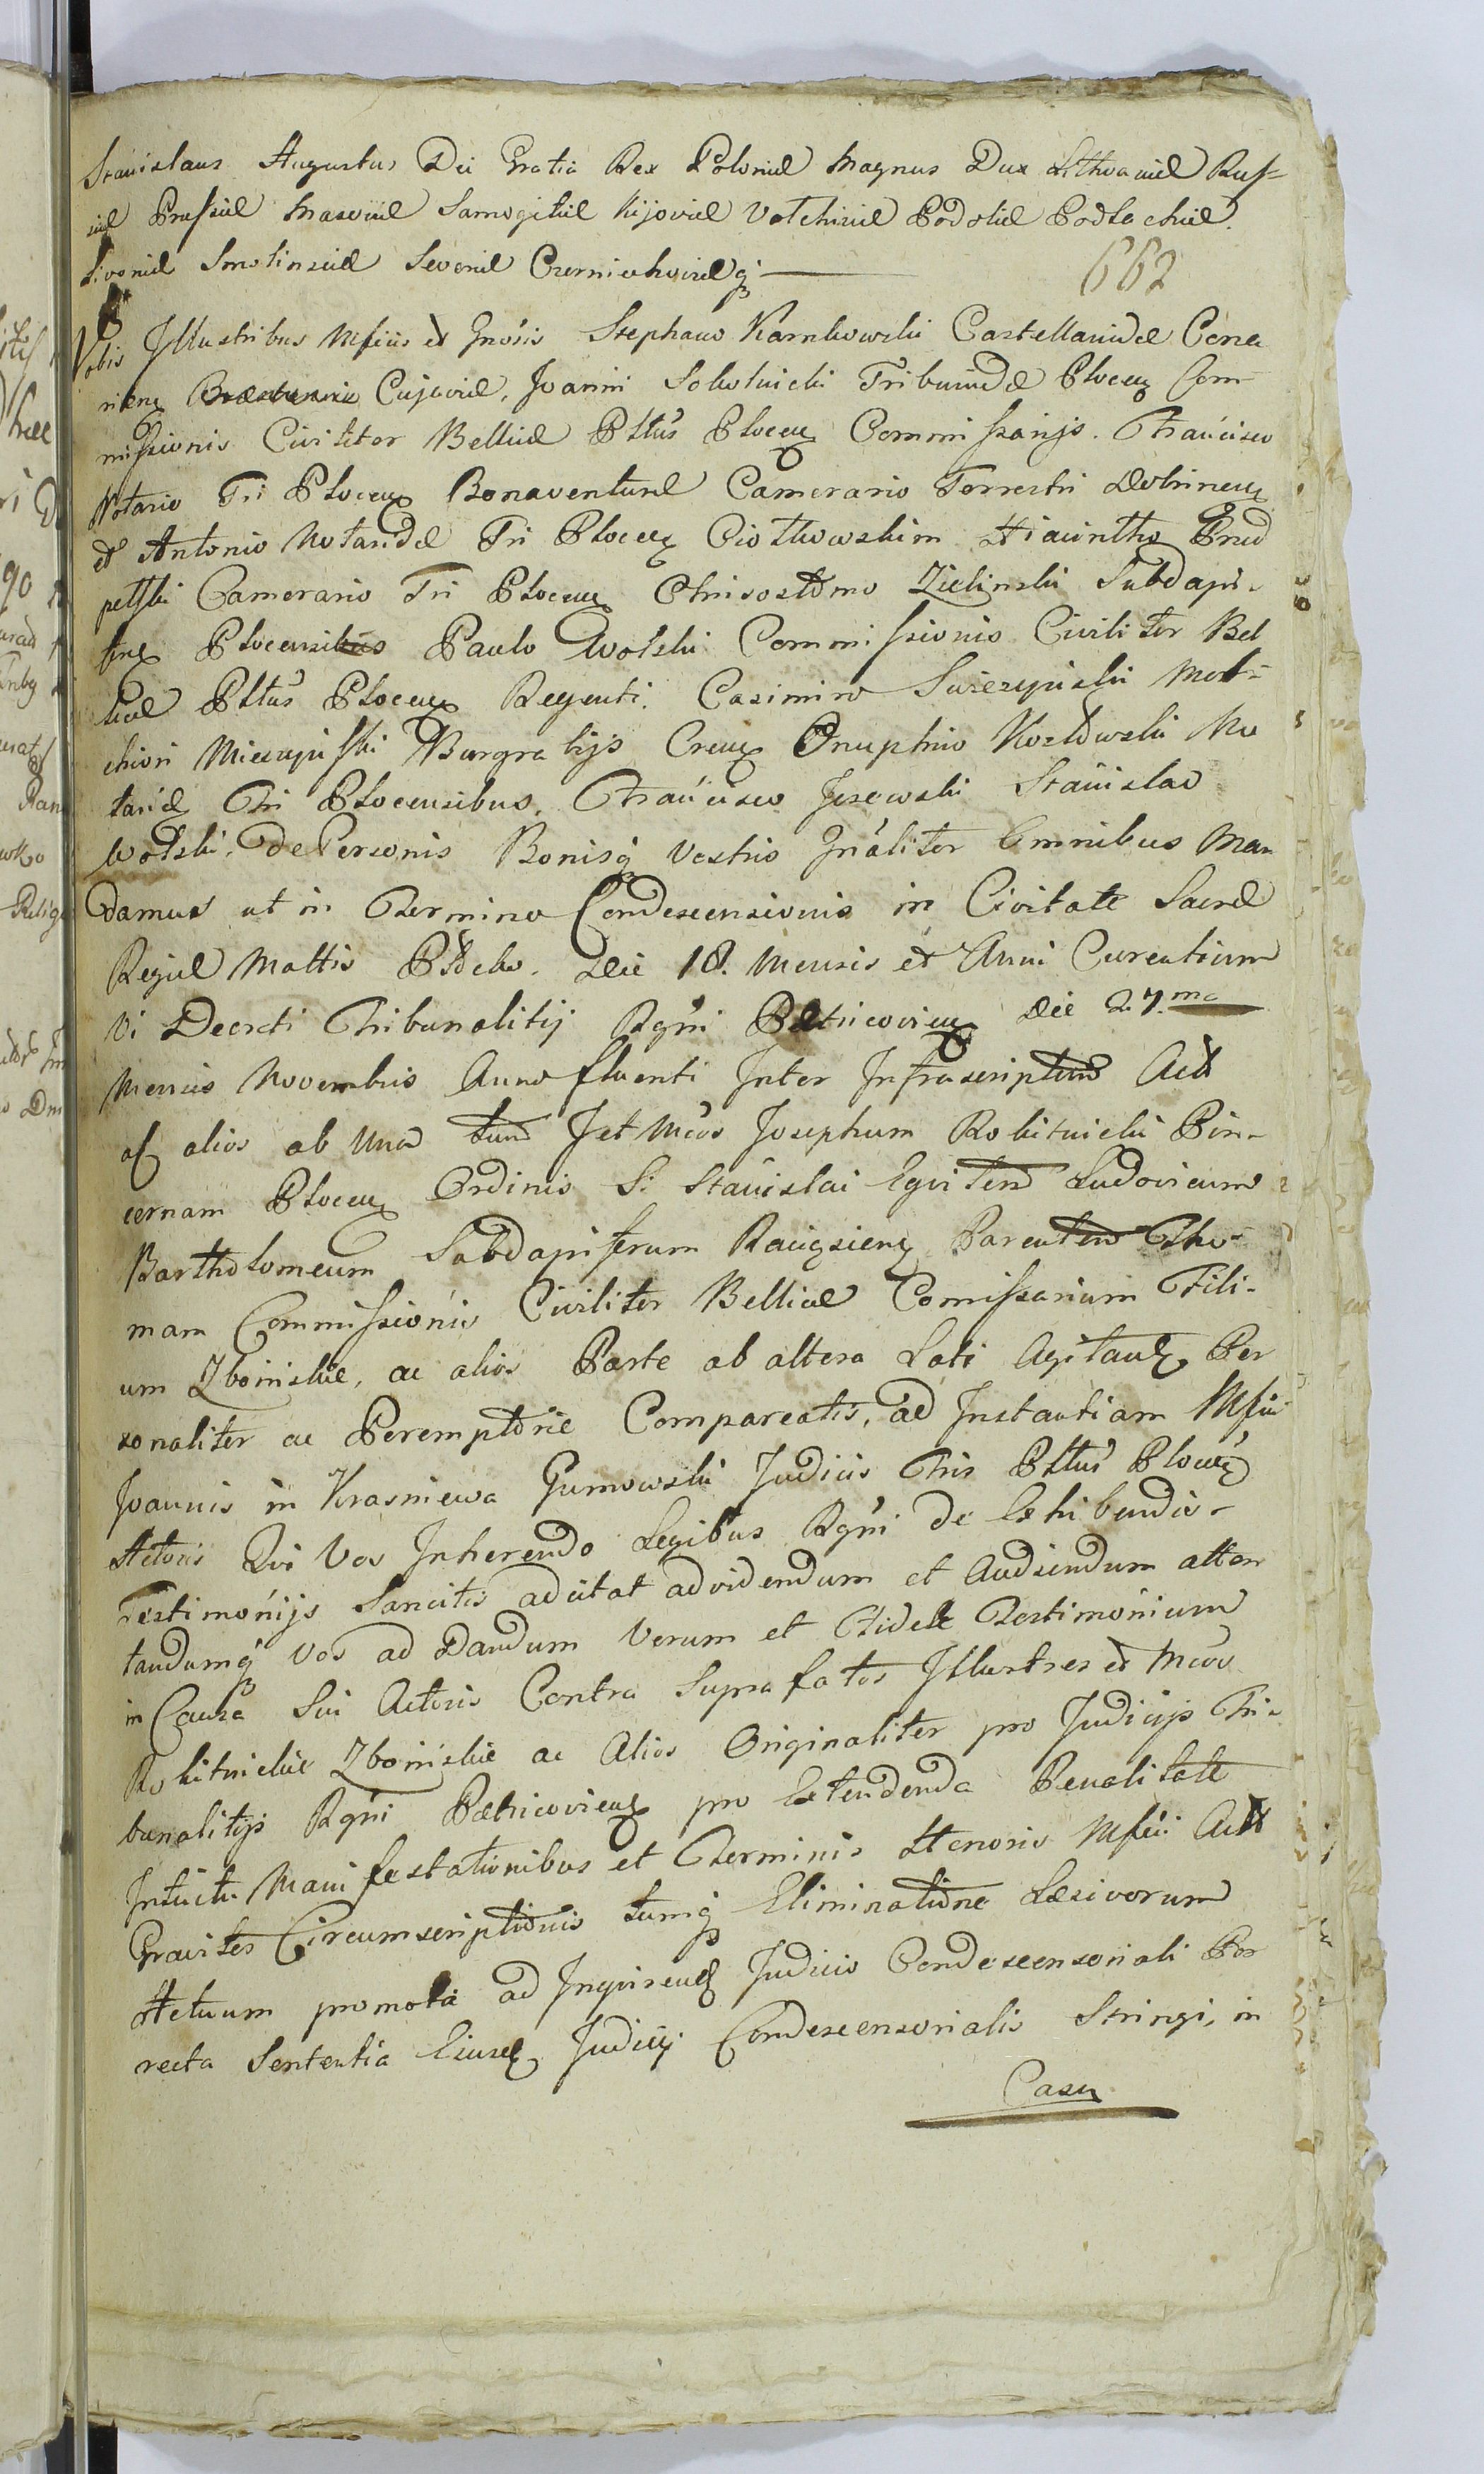 Stanislaus Augustus Dei Gratia Rex Poloniæ Magnus Dux Lithvaniæ Rus-
siæ Prussiæ Masoviæ Samogitiæ Kijoviæ Volchiniæ Podoliæ Podlachiæ
Livoniæ Smolinsciæ Severiæ Czerniechoviæq
662
Vobis Illustribus Mficis et Gnosis Stephano Karnkowski Castellanidæ Cona
riens Cujaviæ, Joanni Sokolnicki Tribunidæ Plocens Com-
missionis Civiliter Bellicæ Pltus Plocens Commissarijs. Francisco
Notario Tri Plocens Bonaventuræ Camerario Terrestri Dobrinens
et Antonio Notaridæ Tri Plocens Ciołkowskim Hiacintho
pełski Camerario Tri Plocens Chrisostomo Zielinski Subdapi-
fero Plocensibus Paulo Wolski Commissionis Civiliter Bel
licæ Pltus Plocens Regenti. Casimiro Swiezynski Mel-
chiori Miszynski Burgrabijs Crens Onuphrio Kozłowski No
taridæ Tri Plocensibus. Francisco Jezewski Stanislao
Wolski. De Personis Bonisq Vestris Gnaliter Omnibus Man
damus ut in Termino Condescensionis in Civitate Sacræ
Regiæ Mattis Płocko. Die 18. Mensis et Anni Curentium
Vi Decreti Tribunalitij Rgni Petricoviens Die 27.ma
Mensis Novembris Anno fluenti Inter Infrascriptum Act
ac alios ab Una tum Jet Mcos Josephum Rokitnicki Pin-
cernam Plocens Ordinis S: Stanislai Eqvitem Ludovicum
Bartholomeum Subdapiferum Raciąziens Parentem Tho-
mam Commissionis Civiliter Bellicæ Comissarium Fili-
um Zboinskie, ac alios Parte ab altera Loti Agitand Per
sonaliter ac Peremptorie Compareatis, ad Instantiam Mfici
Joannis in Krasniewa Gumowski Judicis Tris Pltus Plocens
Actoris Qui Vos Inherendo Legibus Rgni de Exhibendis
Testimonijs Sancitis adcitat ad videndum et Audiendum atten
tandumq Vos ad Dandum Verum et Fidele Testimonium
in Causa Sui Actoris Contra Suprafatos Illustres et Mcos
Rokitnickie Zboinskie ac Alios Originaliter pro Judicijs Tri-
bunalitijs Rgni Petricoviens pro Extendenda Penalitate
Intuitu Manifestationibus et Terminis Honoris Mfici Act
Graviter Circumscriptionis tumq Eliminatione Læsivorum
Actuum promota ad Inqvirend Judicio Condescensoriali Por
recta Sententia Eiusd Judicij Condescensorialis Stringi, in
Casu